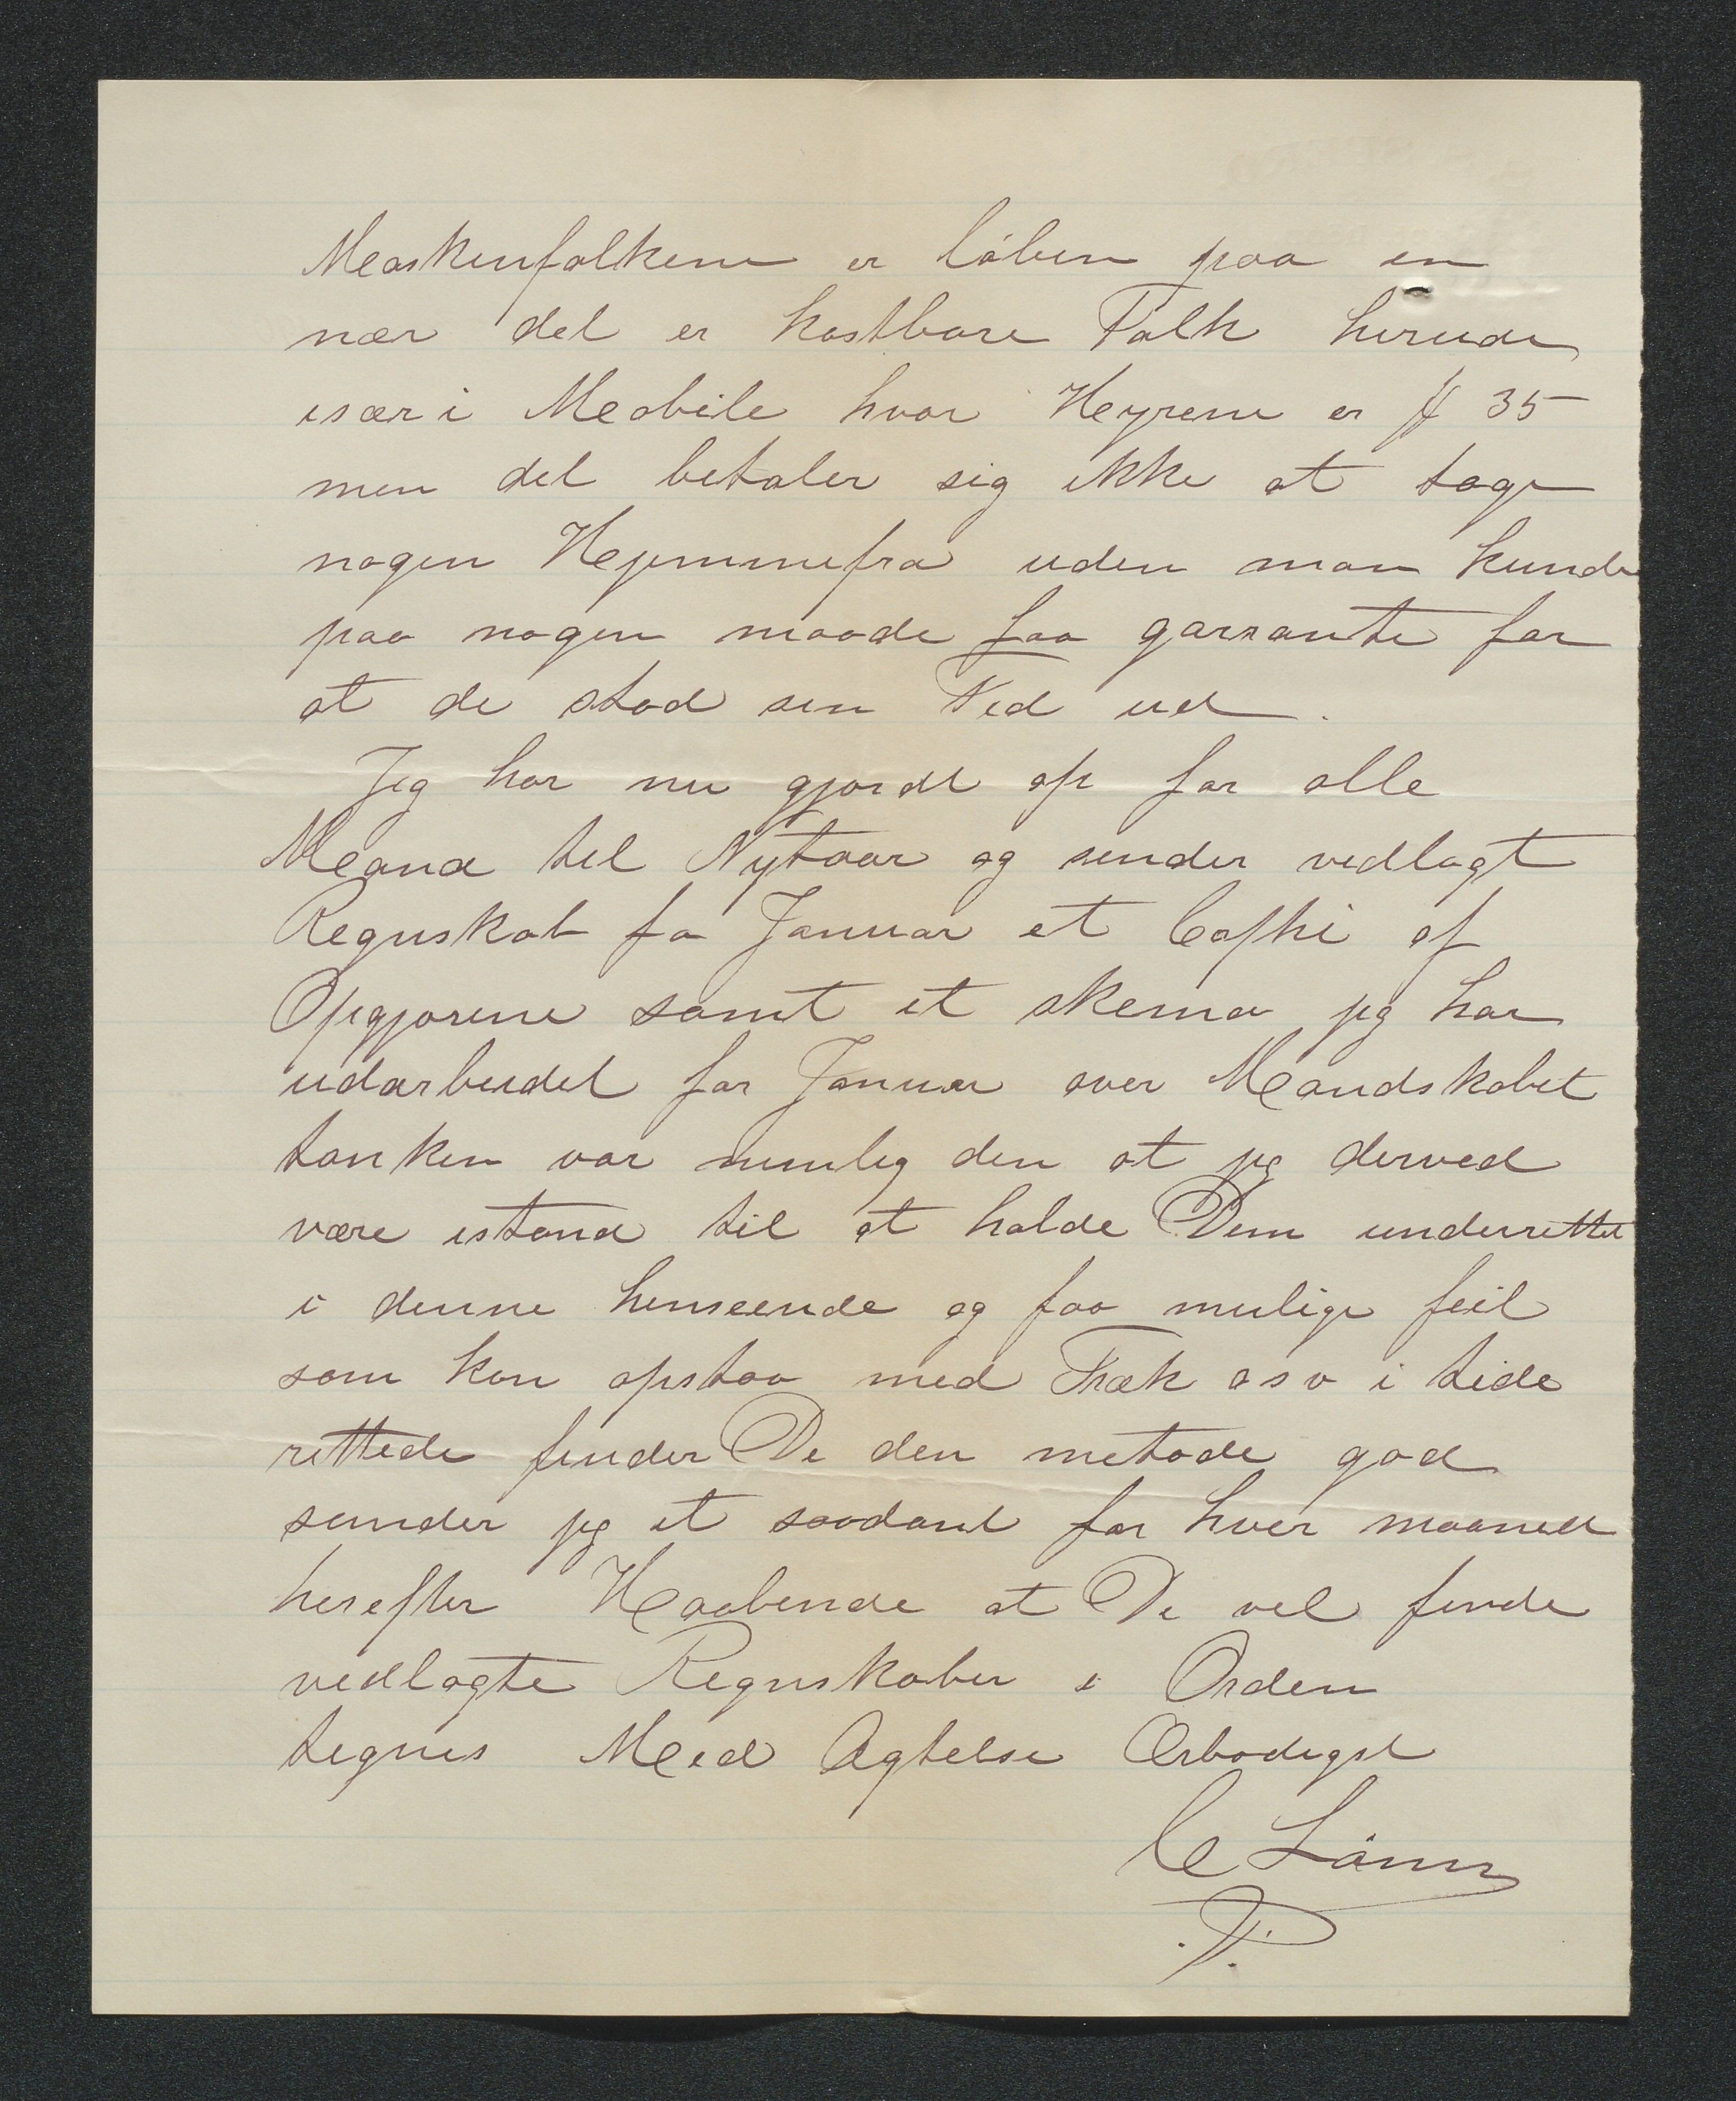 Maskinfolkene er löben paa en
nær det er kostbare Folk herude
især i Mobile hvor Hyrene er $ 35
men det betaler sig ikke at tage
nogen Hjemmefra uden man kunde
paa nogen maade faa garrante for
at de stod sin Tid ud.
Jeg har nu gjordt op for alle
Mand til Nytaar og sender vedlagt
Regnskab fo Januar et Cophi af
Opgjorene samt et skema jeg har
udarbeidet for Januar over Mandskabet
tanken var nemlig den at jeg derved
være istand til at holde Dem underrettet
i denne henseende og faa mulige feil
som kan opstaa med Træk osv i tide
rettede finder De den metode god
sender jeg et saadant for hver maaned
herefter Haabende at De vil finde
vedlagte Regnskaber i Orden
tegnes Med Agtelse Ærbodigst
C Lönn